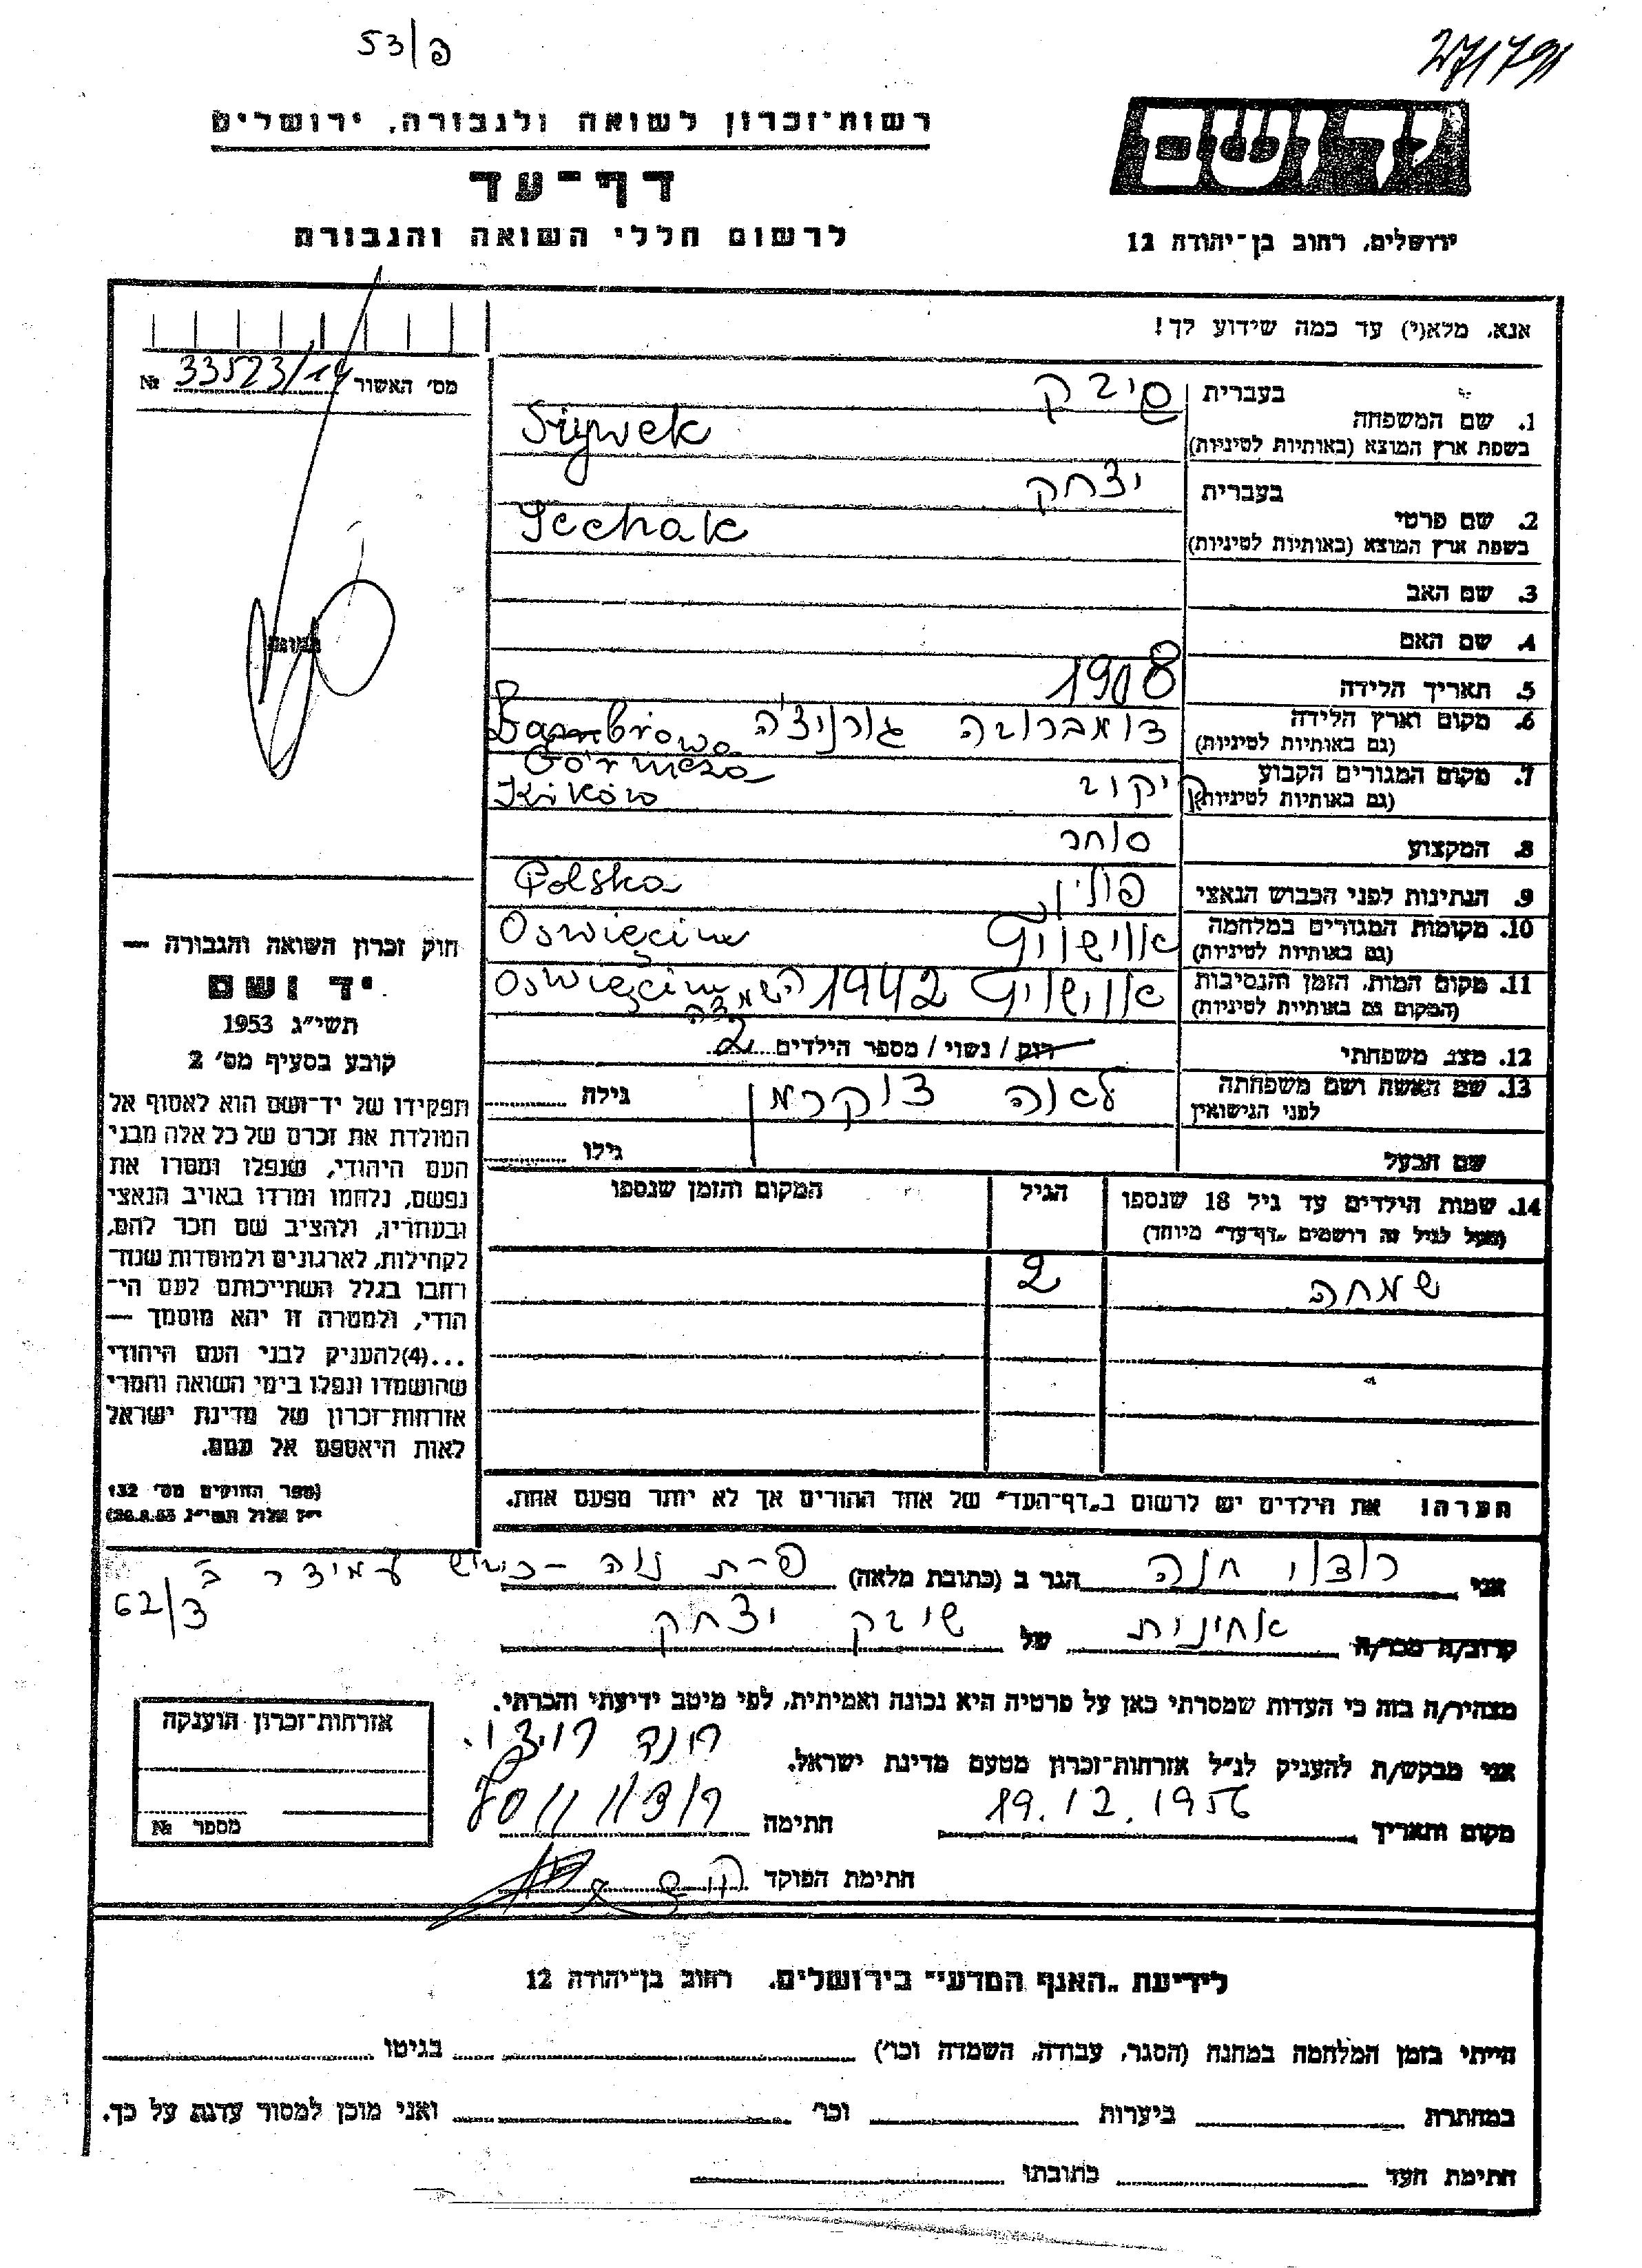 פ/53
27/1791
רשות־זכרון לשואה ולגבורה, ירושלים
דף־עד
לרשום חללי השואה והגבורה
ירושלים, רחוב בן־יהודה 12
אנא, מלא(י) עד כמה שידוע לך!
מס׳ האשור 33523/14 №
תמונה
1. שם המשפחה
בעברית שיבק
בשפת ארץ המוצא (באותיות לטיניות) Siywek
2. שם פרטי
בעברית יצחק
בשפת ארץ המוצא (באותיות לטיניות) Icchak
3. שם האב
4. שם האם
5. תאריך הלידה 1908
6. מקום וארץ הלידה דומברובה גורניצ׳ה
(גם באותיות לטיניות) Dąmbrowa Górnicza
7. מקום המגורים הקבוע
(גם באותיות לטיניות)
8. המקצוע סוחר
9. הנתינות לפני הכבוש הנאצי פולין Polska
10. מקומות המגורים במלחמה אוישויץ Oswięcim
(גם באותיות לטיניות)
11. מקום המות, הזמן והנסיבות אוישויץ 1942 השמדה Oswięcim
(המקום גם באותיות לטיניות)
12. מצב משפחתי רווק / נשוי / מספר הילדים 2
13. שם האשה ושם משפחתה לאה צוקרמן גילה
לפני הנישואין
שם הבעל גילו
14. שמות הילדים עד גיל 18 שנספו הגיל המקום והזמן שנספו
(מעל לגיל זה רושמים „דף־עד״ מיוחד)
שמחה 2
הערה! את הילדים יש לרשום ב„דף־העד״ של אחד ההורים אך לא יותר מפעם אחת.
חוק זכרון השואה והגבורה —
יד ושם
תשי״ג 1953
קובע בסעיף מס׳ 2
תפקידו של יד־ושם הוא לאסוף אל
המולדת את זכרם של כל אלה מבני
העם היהודי, שנפלו ומסרו את
נפשם, נלחמו ומרדו באויב הנאצי
ובעוזריו, ולהציב שם וזכר להם,
לקהילות, לארגונים ולמוסדות שנח־
רבו בגלל השתייכותם לעם הי־
הודי, ולמטרה זו יהא מוסמך —
...(4) להעניק לבני העם היהודי
שהושמדו ונפלו בימי השואה והמרי
אזרחות־זכרון של מדינת ישראל
לאות היאספם אל עמם.
(ספר החוקים מס׳ 132
י״ז אלול תשי״ג 28.8.53)
אני רוצוי חנה הגר ב (כתובת מלאה) פ-ת נוה עמידר ב
62/3
קרוב/ה מכר/ה אחינית של שיבק יצחק
מצהיר/ה בזה כי העדות שמסרתי כאן על פרטיה היא נכונה ואמיתית, לפי מיטב ידיעתי והכרתי.
אני מבקש/ת להעניק לנ״ל אזרחות־זכרון מטעם מדינת ישראל.
מקום ותאריך 19.12.1956 חתימה
חתימת הפוקד
אזרחות־זכרון הוענקה
מספר №
לידיעת „האגף המדעי״ בירושלים, רחוב בן־יהודה 12
הייתי בזמן המלחמה במחנה (הסגר, עבודה, השמדה וכו׳) בגיטו
במחתרת ביערות וכו׳ ואני מוכן למסור עדות על כך.
חתימת העד כתובתו